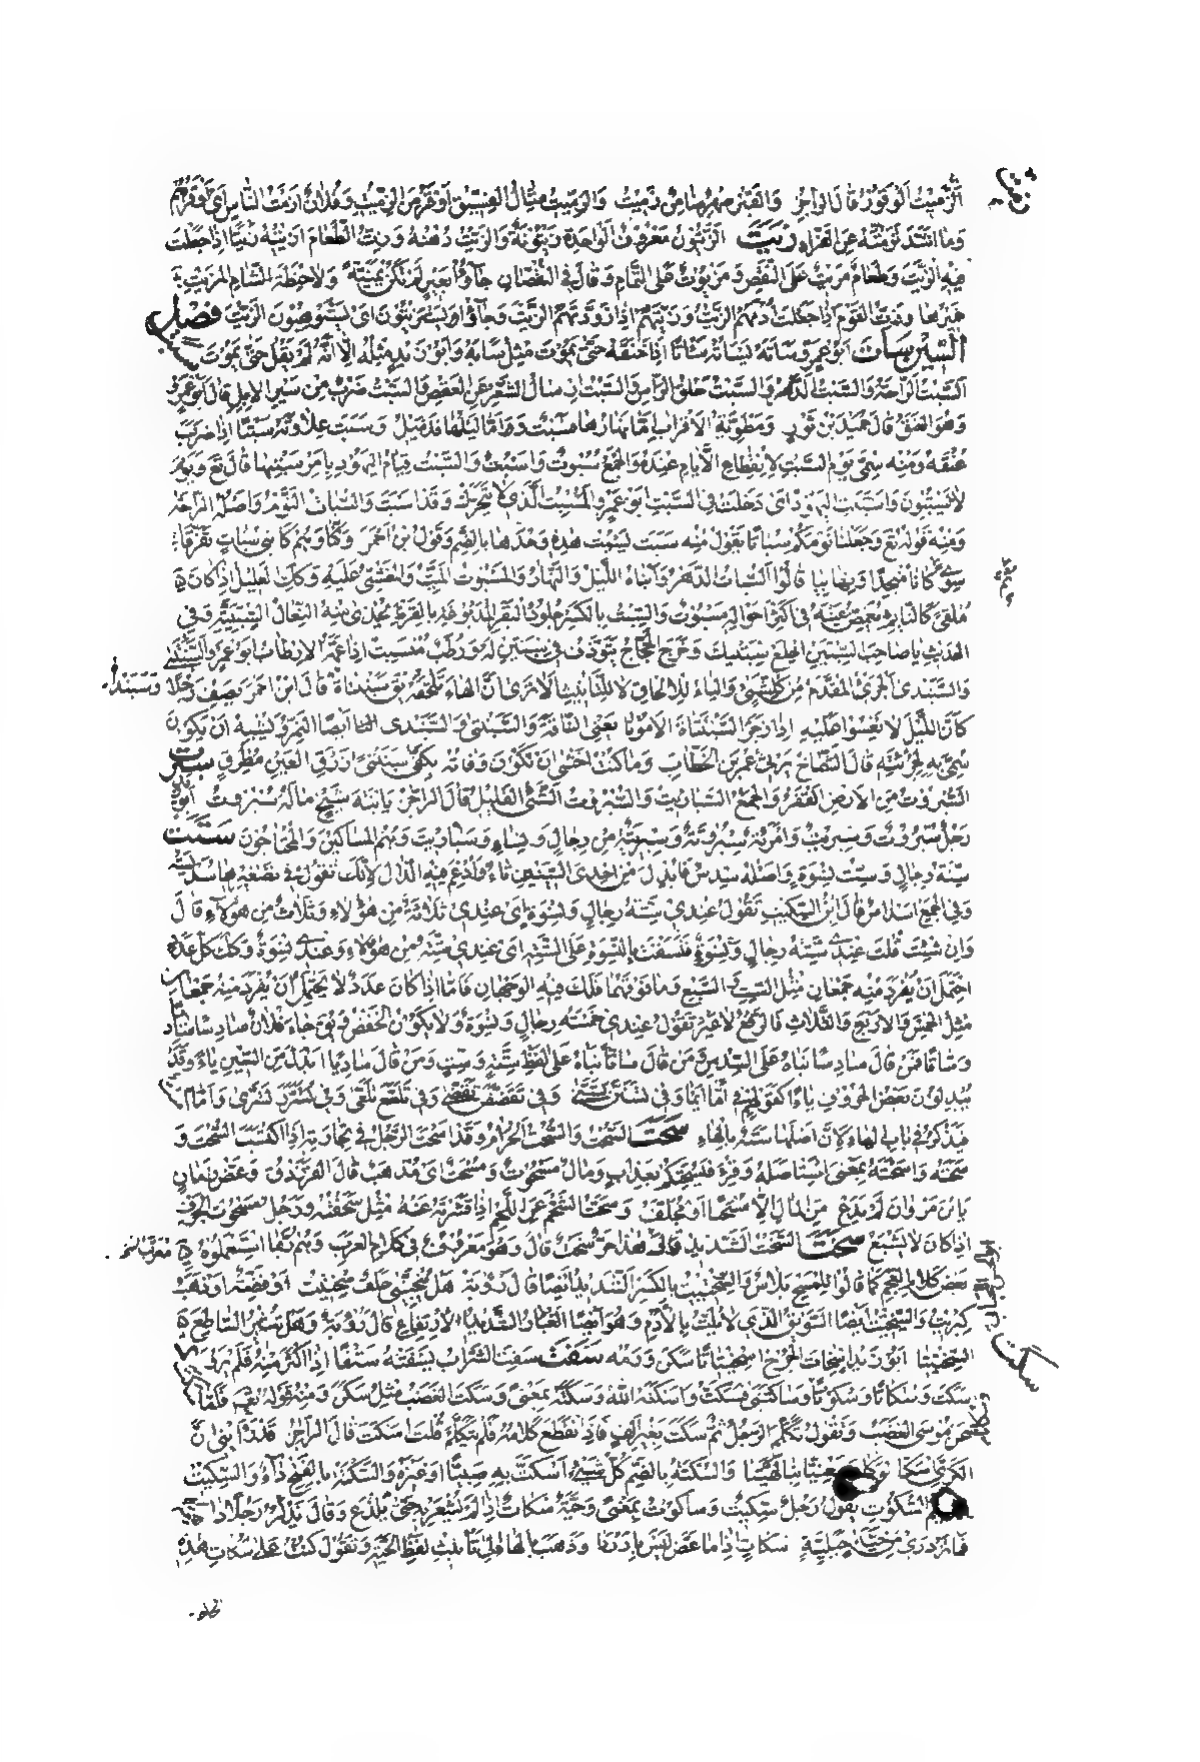 الزَّمِيتُ الوَقُورُ قال الراجز والقبر صهر ضامن زميت والزميت مثال الفسيق اوقر من الزميت وفلان ازمت الناس اي اوقرهم
وما اشد تزمته عن الفراء زيت الزيتون معروف الواحدة زيتونة والزيت دهنه وزت الطعام ازيته زيتا اذا جعلت
فيه الزيت وطعام مزيت على النقص ومزيوت على التمام وقال في النقصان جاؤا بعير لم تكن يمنية ولا حنطة الشام المزيت
خميرها وزت القوم اذا جعلت ادمهم الزيت وزيتهم اذا زودتهم الزيت وجاؤا يستزيتون اي يستوهبون الزيت فصل
السين سات ابو عمرو سأته يسأته سأتا اذا خنقه حتى يموت مثل سابه وابو زيد مثله الا انه لم يقل حتى يموت سبت
السبت الراحة والسبت الدهر والسبت حلق الراس والسبت ارسال الشعر عن العقص والسبت ضرب من سير الابل قال ابو عمرو
وهو العنق قال حميد بن ثور ومطوية الاقراب اما نهارها فسبت واما ليلها فذميل وسبت علاوته سبتا اذا ضرب
عنقه ومنه سمي يوم السبت لانقطاع الايام عنده والجمع سبوت واسبت والسبت قيام اليهود بامر سبتها قال تع ويوم
لا يسبتون واسبتت اليهود اي دخلت في السبت ابو عمرو المسبت الذي لا يتحرك وقد اسبت والسبات النوم واصله الراحة
ومنه قوله تع وجعلنا نومكم سباتا تقول منه سبت يسبت هذه وحدها بالضم وقول بن احمر وكنا وهم كابني سبات تفرقا
سوى ثم كانا منجدا وتهاميا قالوا السبات الدهر وابناه الليل والنهار والمسبوت الميت والمغشي عليه وكذلك العليل اذا كان
ملقى كالنائم يغمض عينيه في اكثر احواله مسبوت والسبت بالكسر جلود البقر المدبوغة بالقرظ تحذى منه النعال السبتية وفي
الحديث يا صاحب السبتين اخلع سبتيك وخرج الحجاج يتوذف في سبتين له ورطب منسبت اذا عمه الارطاب ابو عمرو السبنتى
والسبندى الجري المقدم من كل شي والياء للالحاق لا للتانيث الا ترى ان الهاء تلحقه نق سبنداة قال ابن احمر يصف رجلا
كأن الليل لا يغسوا عليه اذا زجر السبنتاة الامونا يعني الناقة والسبنتى والسبندى ايضا النمر وليشبه ان يكون
سمي به لجرئته قال الشماخ يرثي عمر بن الخطاب وما كنت اخشى ان تكون وفاته بكفي سبنتى ازرق العين مطرق سبرت
السبروت من الارض القفر والجمع السباريت والسبروت الشي القليل قال الراجز يا ابنة شيخ ماله سبروت ابو زيد
رجل سبروت وسبريت وامرئة سبروتة وسبريتة من رجال ونساء وسباريت وهم المساكين والمحتاجون ستت
ستة رجال وست نسوة واصله سدس فابدل من احدى السينين تاء وادغم فيه الدال لانك تقول في تصغيرها سديسة
وفي الجمع اسداس قال ابن السكيت تقول عندي ستة رجال ونسوة اي عندي ثلاثة من هؤلاء وثلاث من هؤلاء قال
وان شئت قلت عندي ستة رجال ونسوة فنسقت بالنسوة على الستة اي عندي ستة من هؤلاء وعندي نسوة وكذلك كل عدد
احتمل ان يفرد منه جمعان مثل الست والسبع وما فوقهما فلك فيه الوجهان فاما اذا كان عدد لا يحتمل ان يفرد منه جمعان
مثل الخمس والاربع والثلاث فالرفع لا غير تقول عندي خمسة رجال ونسوة ولا يكون الخفض ونق جاء فلان سادسا وساديا
وساتا فمن قال سادسا بناه على السدس ومن قال ساتا بناه على لفظ ستة وست ومن قال ساديا ابدل من السين ياء وقد
يبدلون بعض الحروف ياء كقولهم في اما ايما وفي تسنن تسنى وفي تقضض تقضى وفي تلعع تلعى وفي تسرر تسرى واما است
فيذكر في باب الهاء لان اصلها سته بالهاء سحت السحت والسحت الحرام وقد اسحت الرجل في تجارته اذا اكتسب السحت و
سحته واسحته بمعنى استاصله وقرئ فيسحتكم بعذاب ومال مسحوت ومسحت اي مذهب قال الفرزدق وعض زمان
يا بن مروان لم يدع من المال الا مسحتا او مجلف وسحت الشحم عن اللحم اذا قشرته عنه مثل سحفته ورجل مسحوت الجوف
اذا كان لا يشبع سخت السخت الشديد قالى هذا حر سخت قال وهو معروف في كلام العرب وهم ربما استعملوا
بعض كلام العجم كما قالوا للمسح بلاس والسختيت بالكسر الشديد ايضا قال رؤبة هل ينجيني حلف سختيت او فضة او ذهب
كبريت والسختيت ايضا السويق الذي لا يلت بالادم وهو ايضا الغبار الشديد الارتفاع قال رؤبة وهي تثير الساطع
السختيتا ابو زيد اسخات الجرح اسخيتاتا سكن ورمه سفت سفت الشراب يسفته سفتا اذا اكثر منه فلم يرو
سكت وسكاتا وسكوتا وساكتني فسكت واسكته الله وسكته بمعنى وسكت الغضب مثل سكن ومنه قوله تع ولما
عن موسى الغضب وتقول تكلم الرجل ثم سكت بغير الف فاذا انقطع كلامه فلم يتكلم قلت اسكت قال الراجز قد رابني ان
الكري اسكتا لو كان معنيا بنا لهيتا والسكتة بالضم كل شي اسكت به صبيا او غيره والسكتة بالفتح داء والسكيت
السكوت تقول رجل سكيت وساكوت بمعنى وحية سكات اذا لم يشعر به حتى يلدغ وقال يذكر رجلا داهية
فما تزدري من حية جبلية سكات اذا ما عض ليس بادردا وذهب بالهاء الى تانيث لفظ الحية وتقول كنت على سكات هذه